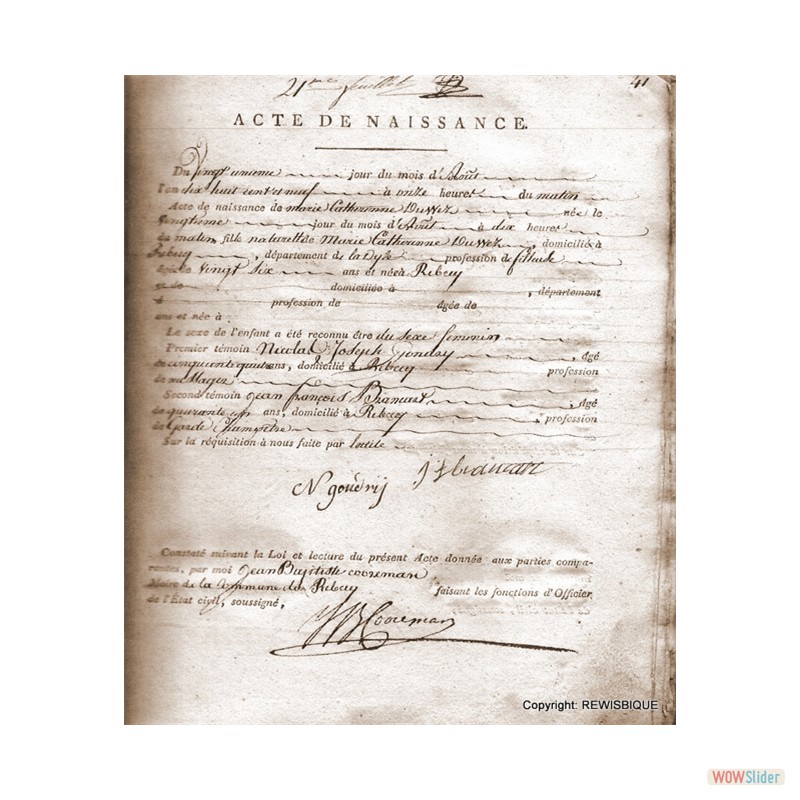 21me feuillet 41
ACTE DE NAISSANCE.
Du Vingt unieme jour du mois d'Août
l'an dix huit cent et neuf à onze heures du matin
Acte de naissance de marie Catherinne Duwez née le
Vingtieme jour du mois d'Août à dix heures
du matin, fille naturelle de Marie Catherinne Duwez, domiciliée à
Rebecq, département de la Dyle profession de fileuse
âgée de vingt six ans et née à Rebecq
et de domiciliée à , département
d profession de âgée de
ans et née à :
Le sexe de l'enfant a été reconnu être du sexe feminin
Premier témoin Nicolas Joseph Gondry, âgé
de cinquante quatre ans, domicilié à Rebecq profession
de messager
Second témoin Jean françois Brancart, âgé
de quarante un ans, domicilié à Rebecq, profession
de Garde Champetre
Sur la réquisition à nous faite par
N goudrij j f brancart
Constaté suivant la Loi et lecture du présent Acte donnée aux parties compa-
rantes, par moi Jean Baptiste cooreman
Maire de la Commune de Rebecq faisant les fonctions d'Officier
de l'État civil, soussigné,
JB Cooreman
Copyright: REWISBIQUE
WOWSlider